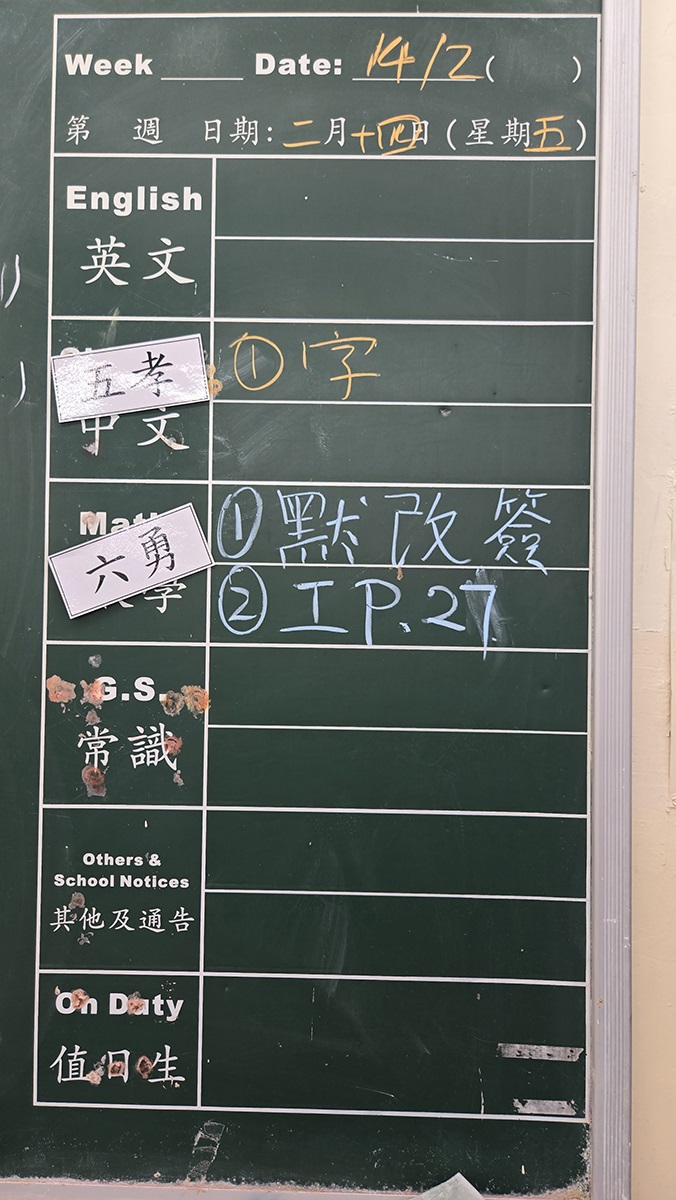 Week ____ Date: 14/2 (    )
第 週 日期: 二月十四日 (星期五)
English
英文
① 字
五孝
中文
Mat
① 默改簽
六勇
學
② 工 P.27
G.S.
常識
Others &
School Notices
其他及通告
On Duty
值日生